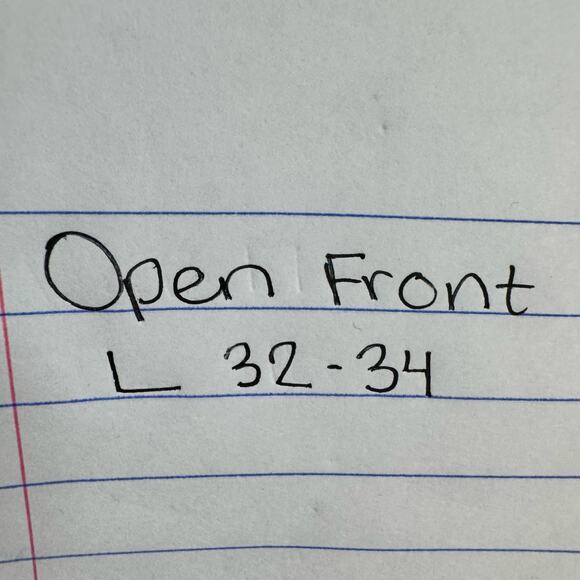 Open Front
L 32-34